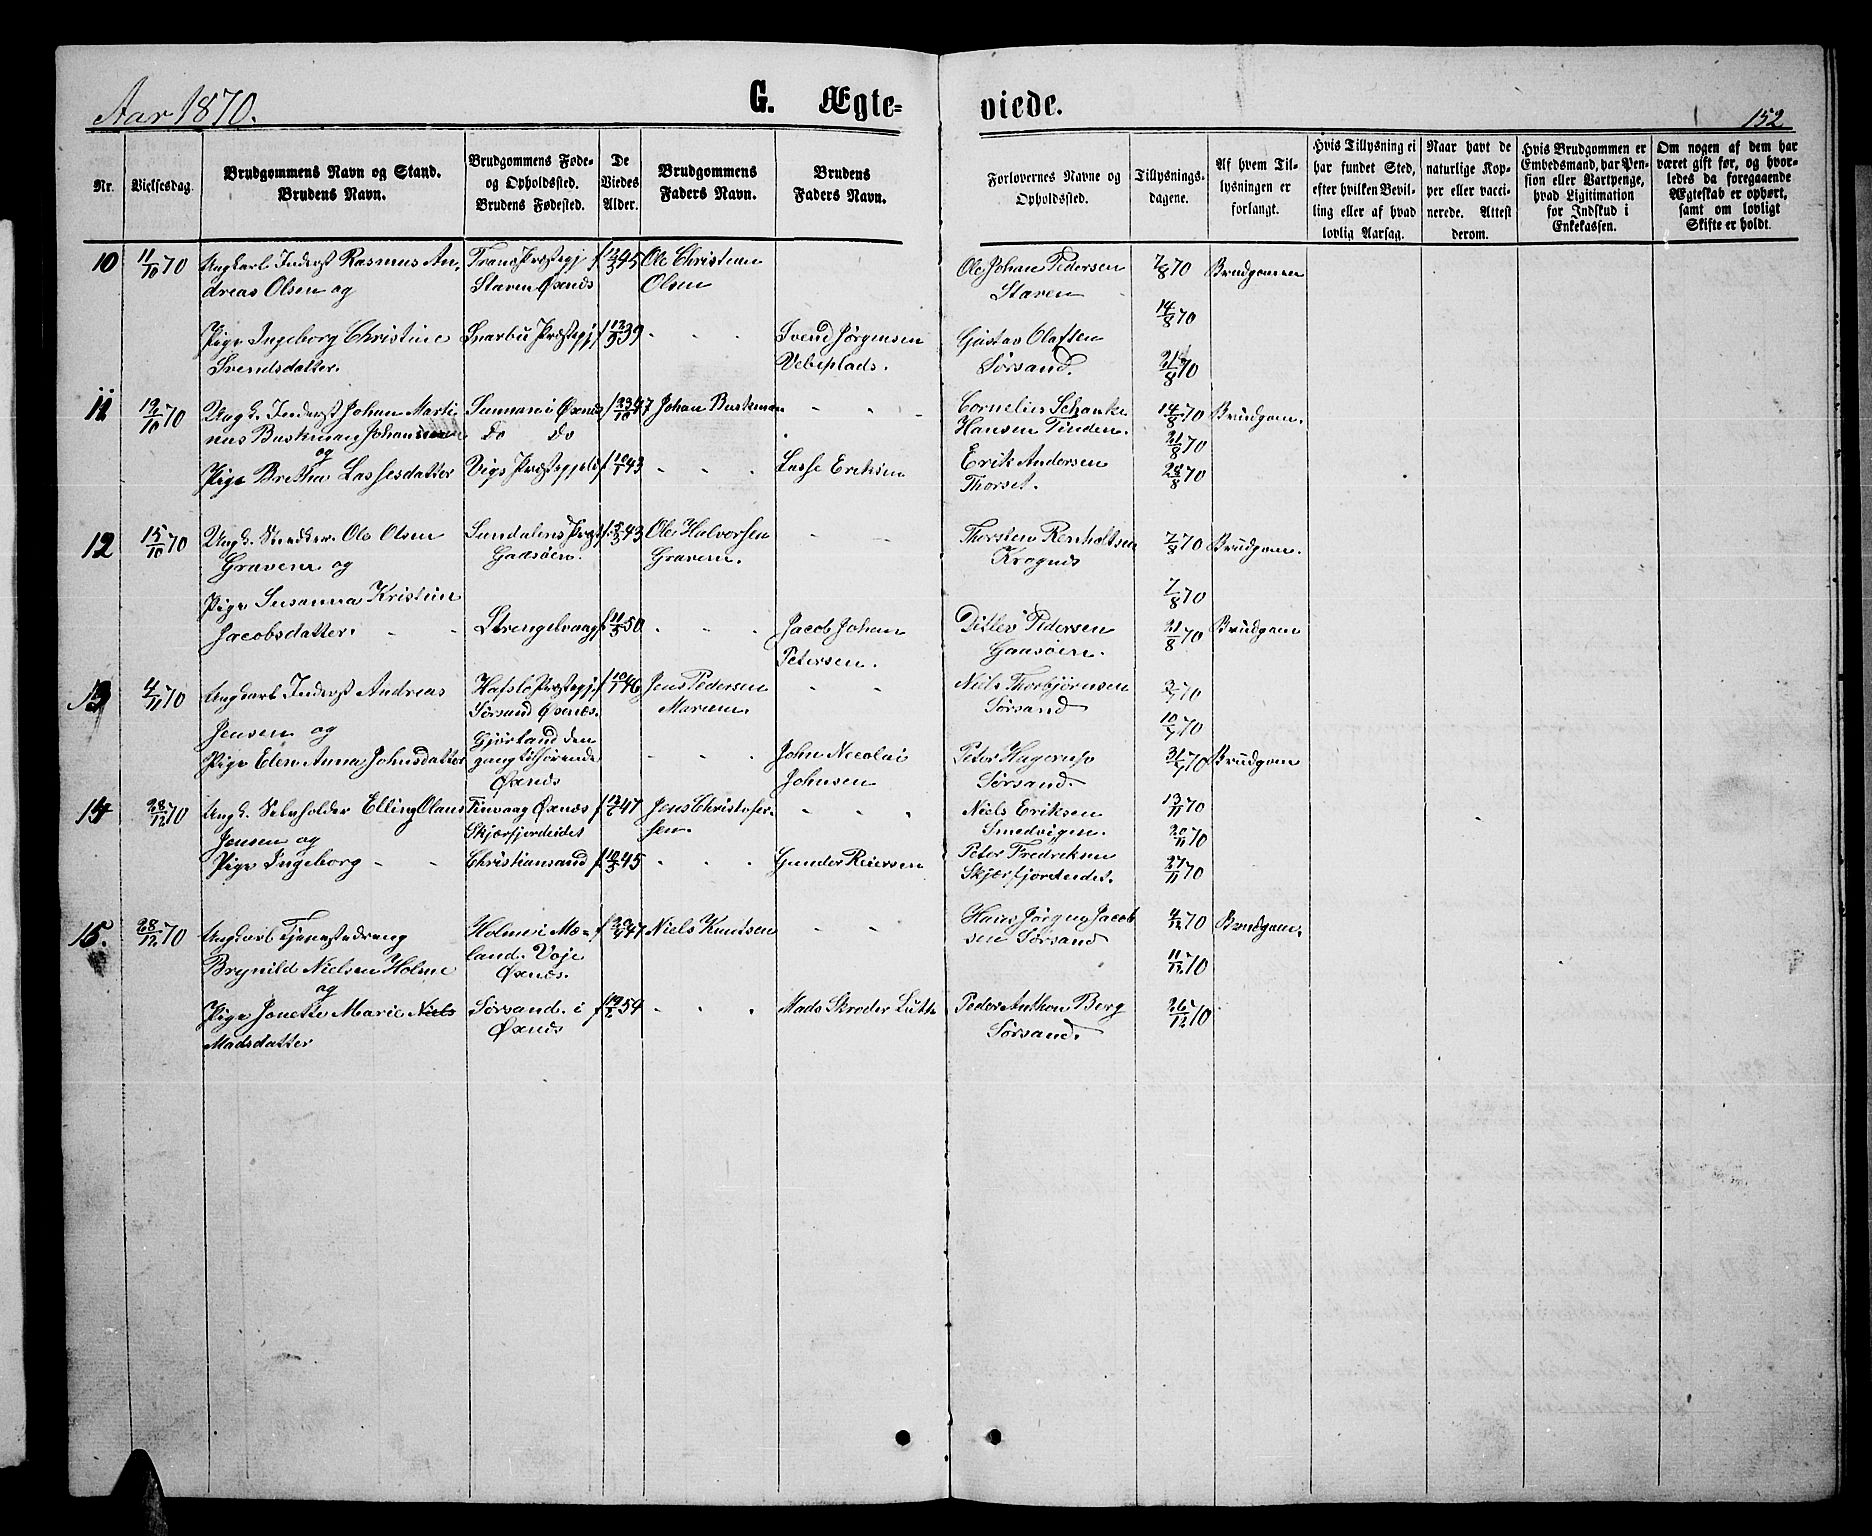 Aar 1870.
G. Ægte-
viede.
152
Nr.
Vielsesdag.
Brudgommens Navn og Stand.
Brudens Navn.
Brudgommens Føde-
og Opholdssted.
Brudens Fødested.
De
Viedes
Alder.
Brudgommens
Faders Navn.
Brudens
Faders Navn.
Forlovernes Navne og
Opholdssted.
Tillysnings-
dagene.
Af hvem Til-
lysningen er
forlangt.
Hvis Tillysning ei
har fundet Sted,
efter hvilken Bevil-
ling eller af hvad
lovlig Aarsag.
Naar havt de
naturlige Kop-
per eller vacci-
nerede. Attest
derom.
Hvis Brudgommen er
Embedsmand, har Pen-
sion eller Vartpenge,
hvad Ligitimation
for Indskud i
Enkekassen.
Om nogen af dem har
været gift før, og hvor-
ledes da foregaaende
Ægteskab er ophørt,
samt om lovligt
Skifte er holdt.
10 11/10 70 Ungkarl Inderst Rasmus An-
dreas Olsen og
Tranø Præstegj
Staven Øxnes
f 12/3 45
Ole Christian
Olsen
Ole Johan Pedersen
Staven
7/8 70
Brudgomen
14/8 70
Pige Ingeborg Christine
Svendsdatter.
Præstegj
f 12/3 39
" "
Svend Jørgensen
Gustav Olafsen
Sørsand.
21/8 70
11 12/10 70 Ungk. Inderst Johan Marti-
nus Buskman Johansen
og
i Øxnes
Do Do
f 23/10 47
Johan Buskman
" "
Cornelius Schanke
Hansen Tinden.
14/8 70
Brudgom.
21/8 70
Pige Bretha Lassesdatter
Vigs Præstegjeld
f 10/1 43
" "
Lasse Eriksen
Erik Andersen
Thorset.
28/8 70
12 15/10 70 Ungk. Ole Olsen
Gravem og
Sundalens Præst
Gaasøen.
43
Ole Halvorsen
Gravem.
" "
Thorsten Renholtsen
Krognes
7/8 70
Brudgom.
7/8 70
Pige Susanna Kristine
Jacobsdatter. " "
Strengelvaag
f 11/5 50
" "
Jacob Johan
Petersen.
Ditlev Pedersen
Gaasøen.
21/8 70
Brudgom
13 4/11 70 Ungkarl Inderst Andreas
Jensen og
Hafslo Præstegj
Sørsand Øxnes.
f 10/1 46
Jens Pedersen
" "
Niels Thorbjørnsen
Sørsand
10/7 70
Pige Elen Anna Johnsdatter
den
gang tilhørende
Øxnes
" "
John Nicolai
Johnsen
Peter Hagerup
Sørsand.
31/7 70
Brudgom
14 28/12 70 Ungk. Selvholder Elling Olaus
Jensen og
Tinvaag Øxnes
Skjærfjordeidet
f 12/6 47
Jens Christofer-
sen.
" " "
Niels Eriksen
Smedvigen.
13/11 70
20/11 70
Pige Ingeborg " "
Christiansand
45
" "
Gunder Reiersen
Peter Fredriksen
Skjærfjordeidet.
27/11 70
15. 28/12 70 Ungkarl Tjenestedreng
Brynild Nielsen Holme
og
Holme i Mæ-
land. Voje
Øxnes.
47
Niels Knudsen
" "
Hans Jørgen Jacob
sen Sørsand
4/12 70
Brudgom.
11/12 70
Pige Jonette Marie Niels
Madsdatter
Sørsand. i
Øxnes
54
" " "
Mads Skroder Lütk
Peder Anthon Berg
Sørsand.
26/12 70